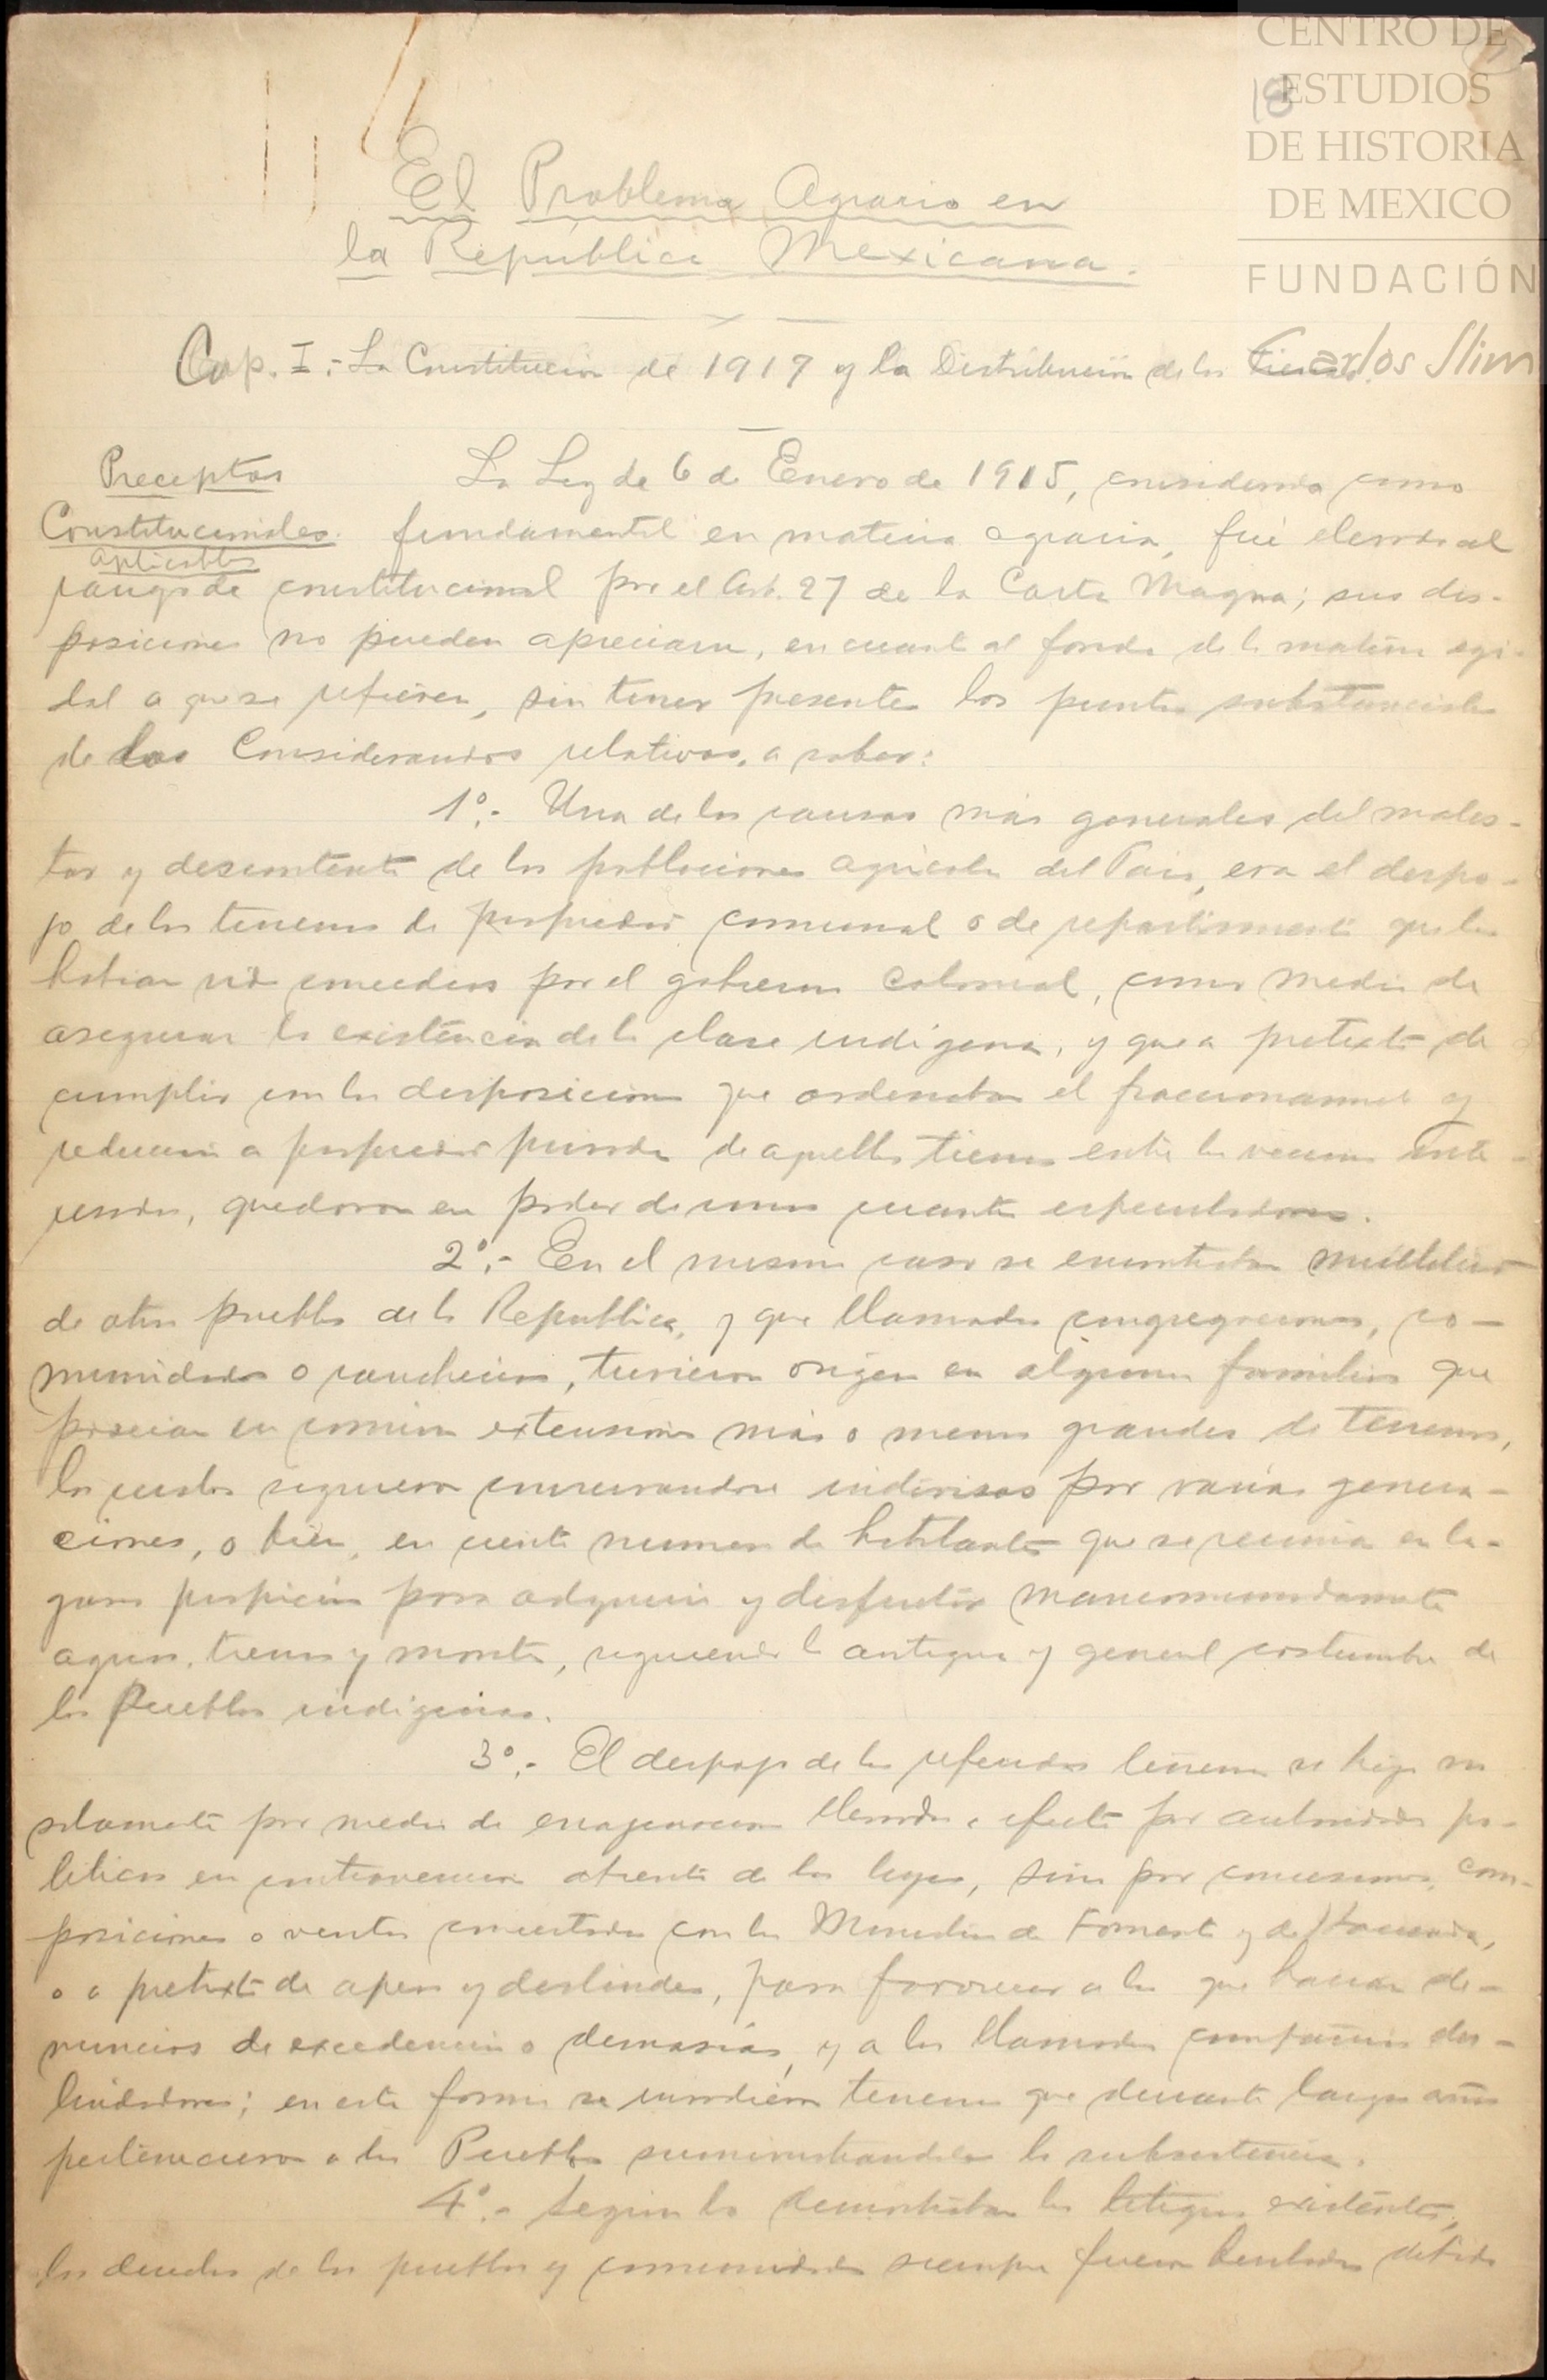 CENTRO DE
ESTUDIOS
DE HISTORIA
DE MEXICO
FUNDACIÓN
Carlos Slim
18
El Problema Agrario en
la República Mexicana.
Cap. I.- La Constitución de 1917 y la Distribución de las Tierras.
Preceptos
Constitucionales
aplicables
La Ley de 6 de Enero de 1915, considerada como
fundamental en materia agraria, fué elevada al
rango de constitucional por el Art. 27 de la Carta Magna; sus dis-
posiciones no pueden apreciarse, en cuanto al fondo de la materia eji-
dal a que se refieren, sin tener presentes los puntos substanciales
de los Considerandos relativos, a saber:
1º.- Una de las causas más generales del males-
tar y descontento de las poblaciones agrícolas del País, era el despo-
jo de los terrenos de propiedad comunal o de repartimiento que les
habían sido concedidos por el gobierno colonial, como medio de
asegurar la existencia de la clase indígena, y que a pretexto de
cumplir con las disposiciones que ordenaban el fraccionamiento y
reducción a propiedad privada de aquellas tierras entre los vecinos inte-
resados, quedaron en poder de unos cuantos especuladores.
2º.- En el mismo caso se encontraban multitud
de otros pueblos de la República, y que llamados congregaciones, co-
munidades o rancherías, tuvieron origen en algunas familias que
poseían en común extensiones más o menos grandes de terrenos,
los cuales siguieron conservandose indivisos por varias genera-
ciones, o bien, en cierto numero de habitantes que se reunía en lu-
gares propicios para adquirir y disfrutar mancomunadamente
aguas, tierras y montes, siguiendo la antigua y general costumbre de
los Pueblos indígenas.
3º.- El despojo de los referidos terrenos se hizo no
solamente por medio de enagenaciones llevadas a efecto por autoridades po-
líticas en contravención abierta de las leyes, sino por concesiones, com-
posiciones o ventas concertadas con los Ministros de Fomento y de Hacienda,
o a pretexto de apeos y deslindes, para favorecer a los que hacían de-
nuncios de excedencias o demasías, y a las llamadas compañías des-
lindadoras; en esta forma se invadieron terrenos que durante largos años
pertenecieron a los Pueblos suministrandoles la subsistencia.
4º.- Según lo demostraban los litigios existentes,
los derechos de los pueblos y comunidades siempre fueron burlados debido